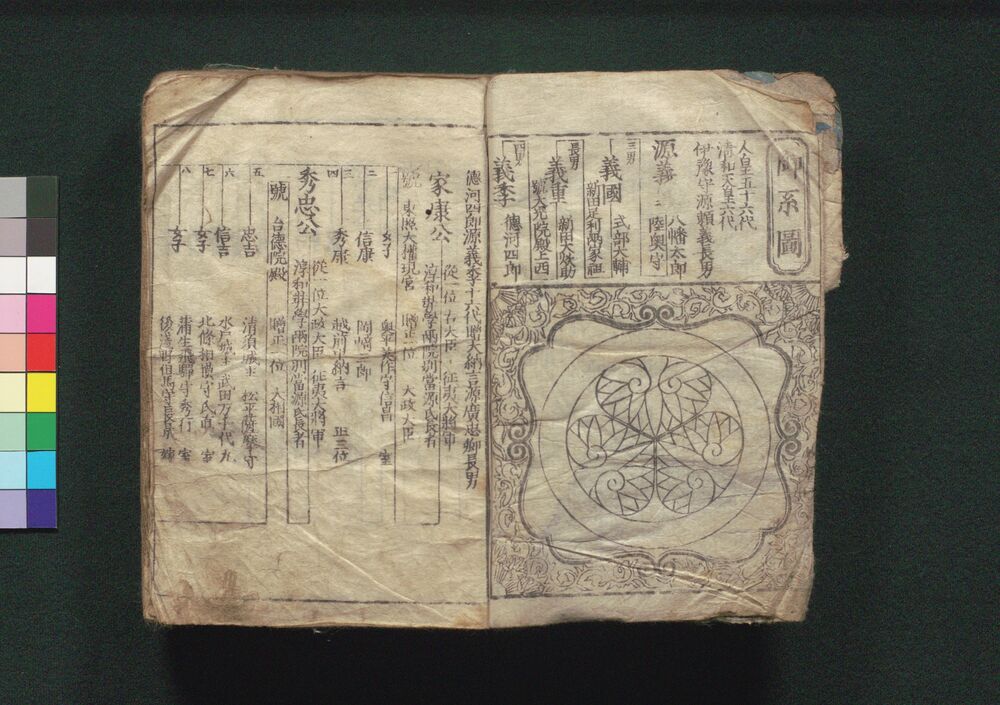 御系圖
人皇五十六代
清和天皇六代
伊豫守源頼義長男
源義
八幡太郎
陸奥守
三男
義國
式部大輔
新田足利両家祖
長男
義重
新田大炊助
號大光院殿上西
四男
義季
德河四郎
德河四郎源義季十六代贈大納言源廣忠卿長男
家康公
從一位右大臣 征夷大將軍
淳和奬學兩院別當源氏長者
號 東照大權現宮 贈正一位 大政大臣
女子 奥平美作守信昌 室
二 信康 岡崎三郎
三 秀康 越前中納言 正三位
四
秀忠公
從一位大政大臣 征夷大將軍
淳和奬學兩院別當源氏長者
號 台德院殿 贈正一位 大相國
五 忠吉 清須城主 松平薩摩守
六 信吉 水戸城主 武田万千代丸
七 女子 北條相摸守氏直 室
八 女子 蒲生飛騨守秀行 室